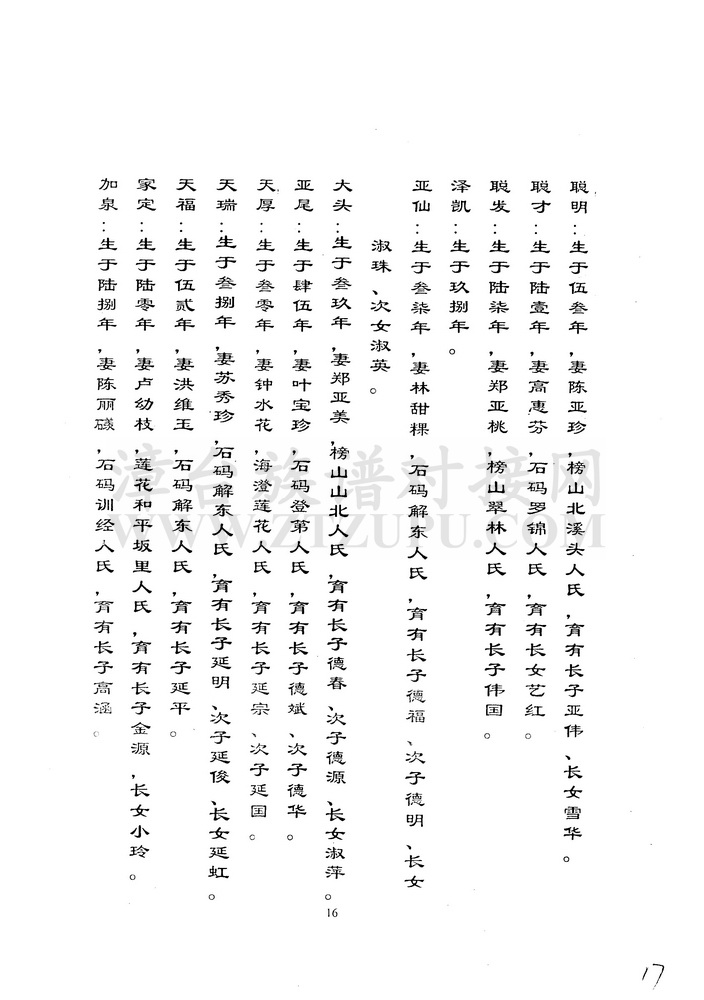 聪明：生于伍叁年，妻陈亚珍，榜山北溪头人氏，育有长子亚伟、长女雪华。
聪才：生于陆壹年，妻高惠芬，石码罗锦人氏，育有长女艺红。
聪发：生于陆柒年，妻郑亚桃，榜山翠林人氏，育有长子伟国。
泽凯：生于玖捌年。
亚仙：生于叁柒年，妻林甜粿，石码解东人氏，育有长子德福、次子德明、长女
淑珠、次女淑英。
大头：生于叁玖年，妻郑亚美，榜山山北人氏，育有长子德春、次子德源、长女淑萍。
亚尾：生于肆伍年，妻叶宝珍，石码登第人氏，育有长子德斌、次子德华。
天厚：生于叁零年，妻钟水花，海澄莲花人氏，育有长子延宗、次子延国。
天瑞：生于叁捌年，妻苏秀珍，石码解东人氏，育有长子延明、次子延俊、长女延虹。
天福：生于伍贰年，妻洪维玉，石码解东人氏，育有长子延平。
家定：生于陆零年，妻卢幼枝，莲花和平坂里人氏，育有长子金源，长女小玲。
加泉：生于陆捌年，妻陈丽，石码训经人氏，育有长子高涵。
16
17
漳台族谱对接网
WWW.ZTZUPU.COM